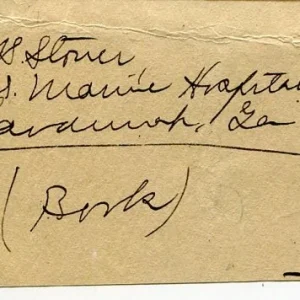 S Stoner,
S. Marine Hospital
avannah, Ga
(Book)